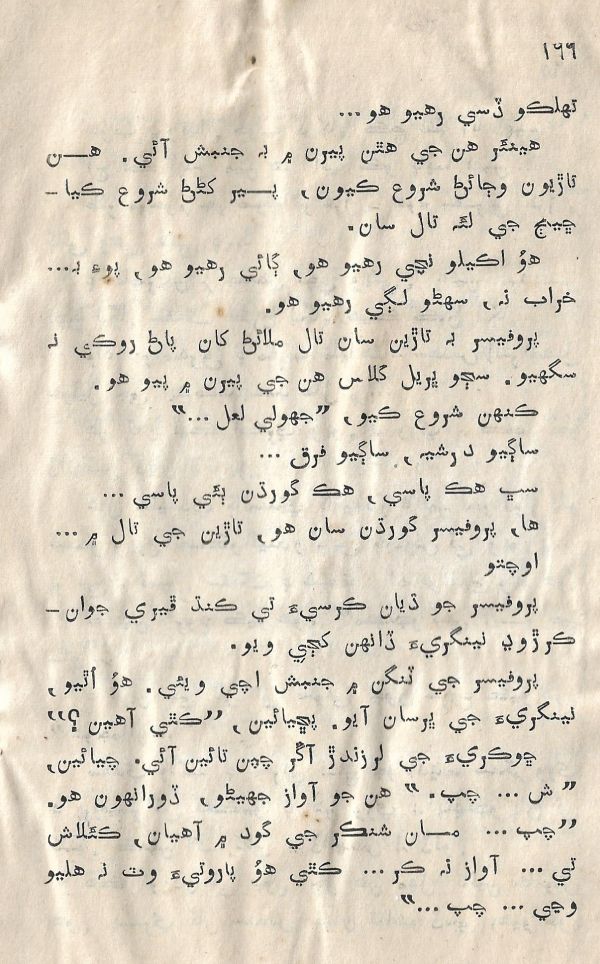 ١٦٩
تهلڪو ڏسي رهيو هو...
هينئر هن جي هٿن پيرن ۾ به جنبش آئي. هن
تاڙيون وڄائڻ شروع ڪيون، پير کڻڻ شروع ڪيا-
ڇيڄ جي لئه تال سان.
هوُ اڪيلو نچي رهيو هو، ڳائي رهيو هو، پوءِ به...
خراب نه، سهڻو لڳي رهيو هو.
پروفيسر به تاڙين سان تال ملائڻ کان پاڻ روڪي نه
سگهيو. سڄو ڀريل گلاس هن جي پيرن ۾ پيو هو.
ڪنهن شروع ڪيو، ”جهولي لعل...“
ساڳيو درشيه، ساڳيو فرق ...
سڀ هڪ پاسي، هڪ گورڌن ٻئي پاسي...
ها، پروفيسر گورڌن سان هو، تاڙين جي تال ۾ ...
اوچتو
پروفيسر جو ڌيان ڪرسيءَ تي ڪنڌ ڦيري جوان-
ڪرڙوڍ نينگريءَ ڏانهن کڄي ويو.
پروفيسر جي ٽنگن ۾ جنبش اچي ويئي. هوُ اُٿيو،
نينگريءَ جي ڀرسان آيو. پڇيائين، ”ڪٿي آهين؟“
ڇوڪريءَ جي لرزندڙ آڱر چپن تائين آئي. چيائين،
”ش ... چپ.“ هن جو آواز جهيڻو، ڏورانهون هو.
”چپ ... مان شنڪر جي گود ۾ آهيان، ڪئلاش
تي ... آواز نه ڪر ... ڪٿي هوُ پاروتيءَ وٽ نه هليو
وڃي ... چپ ...“